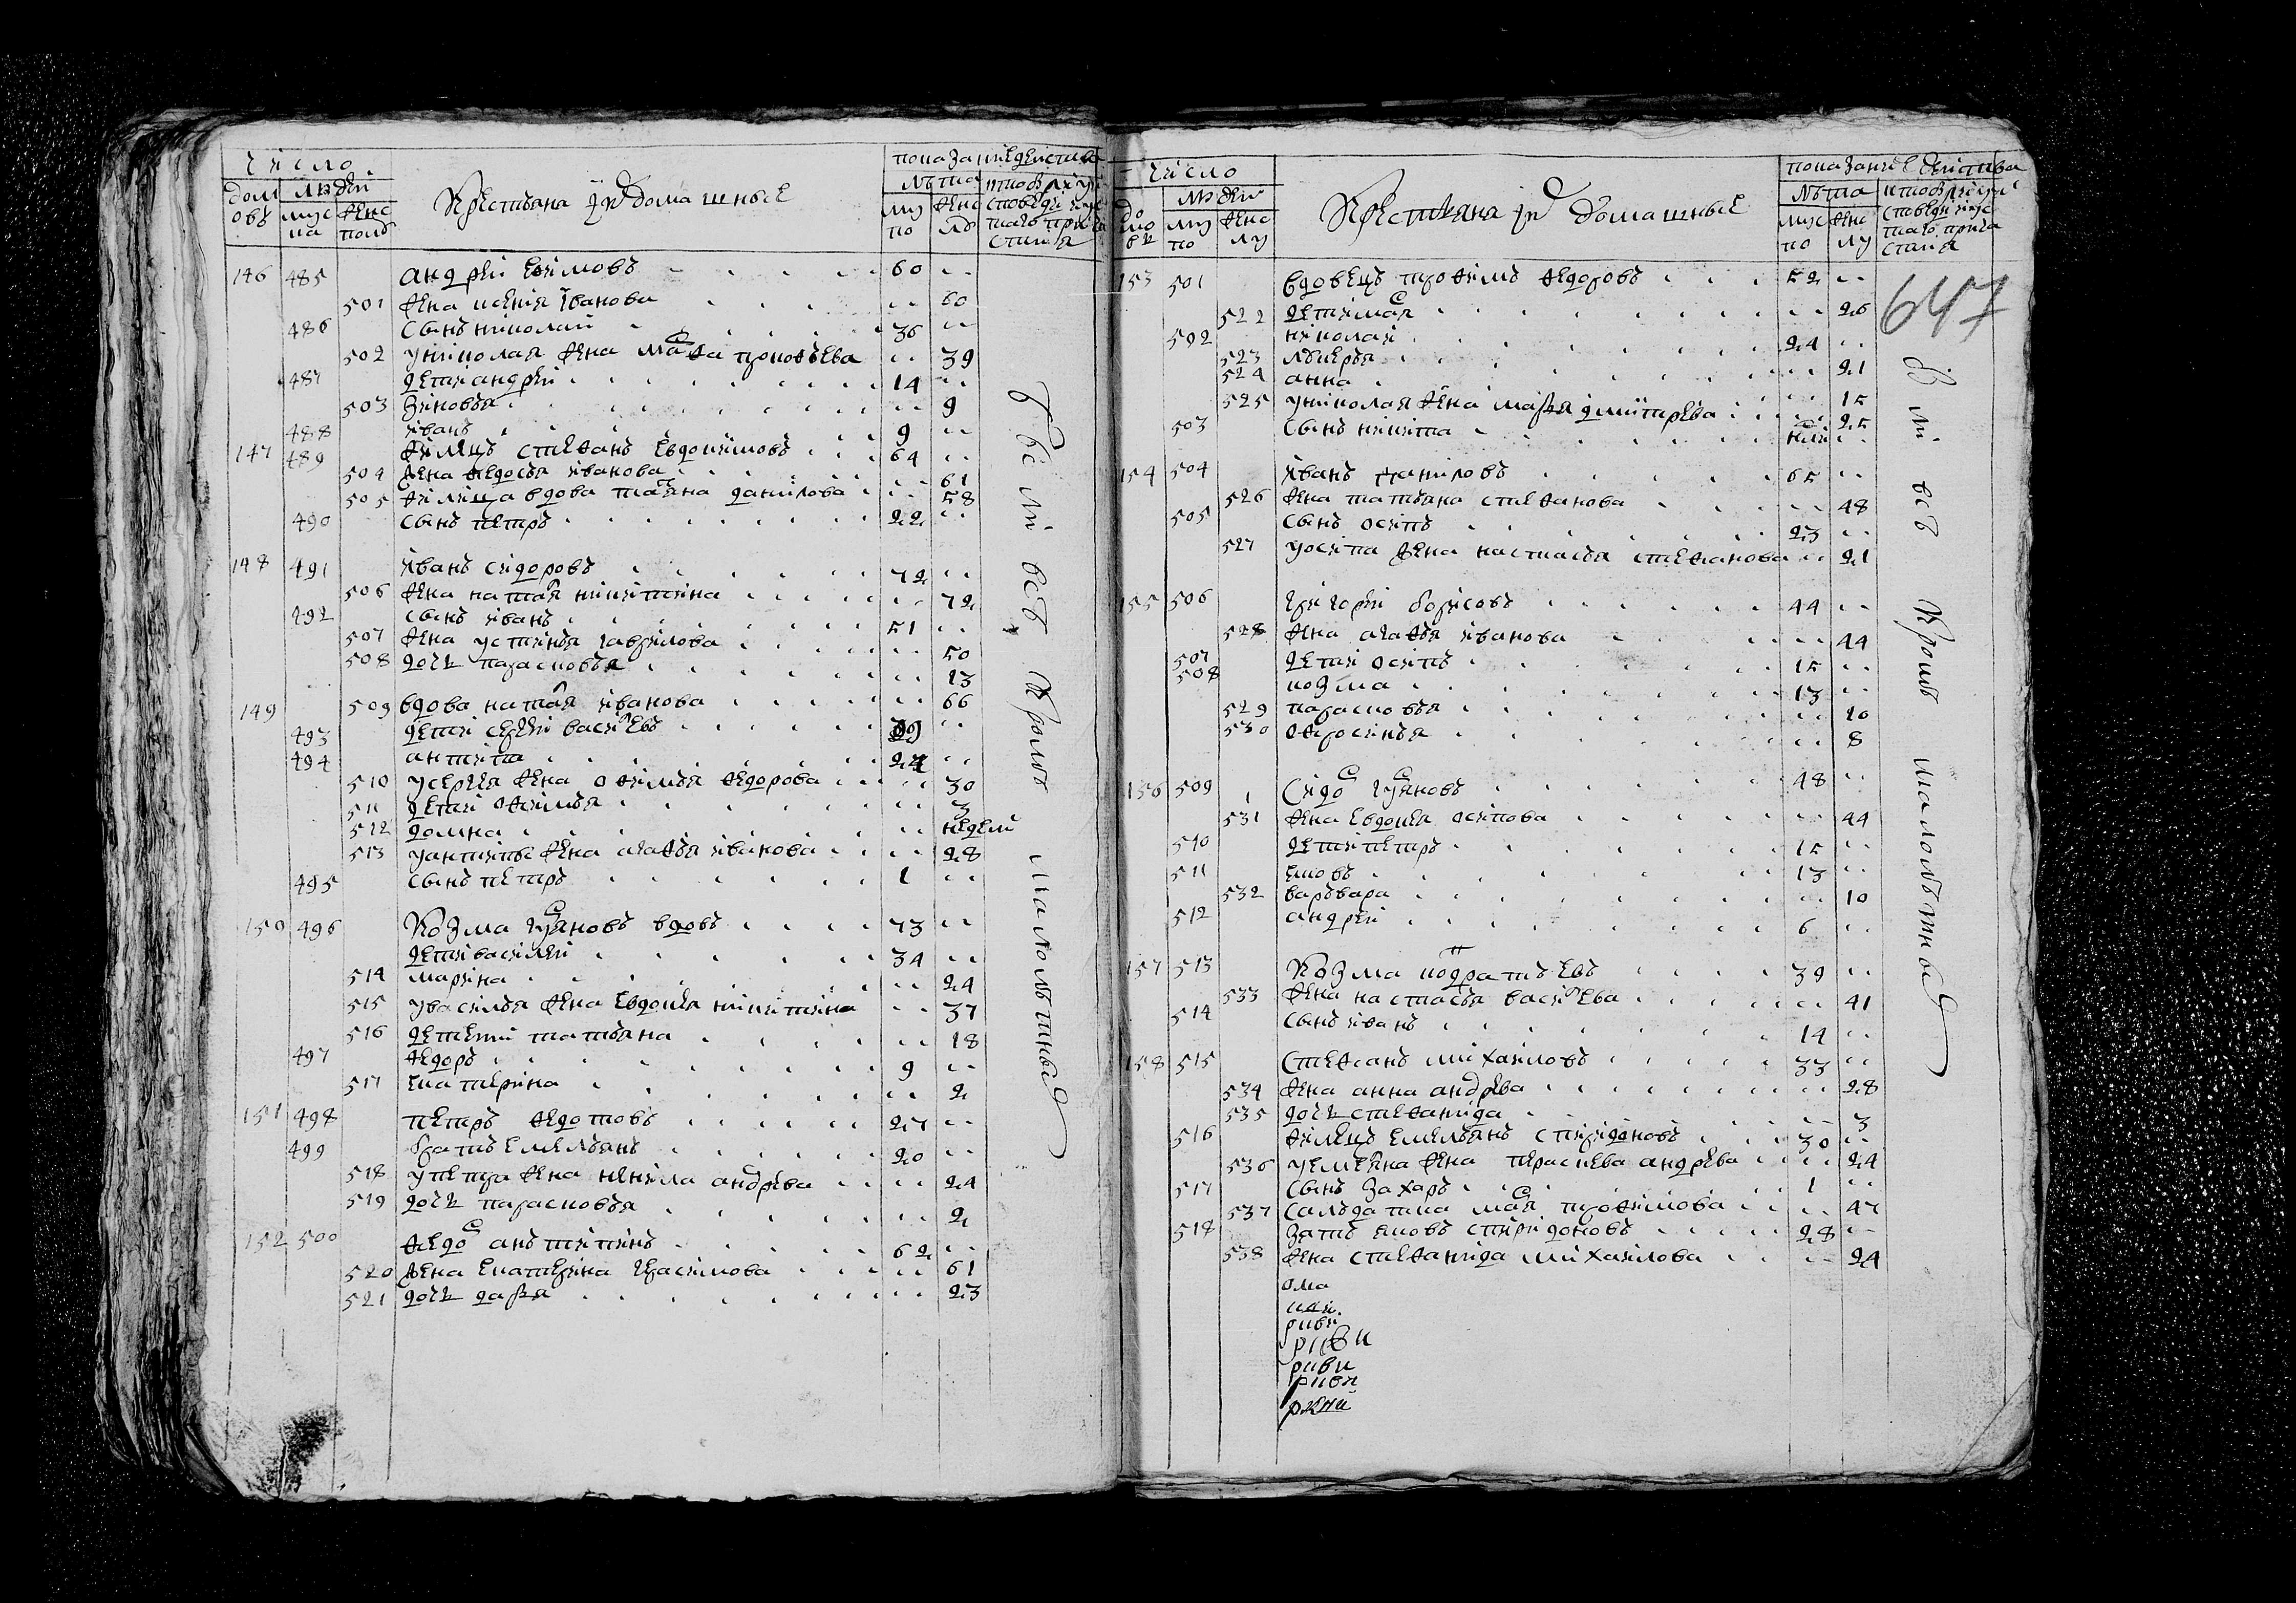 число
домовъ людей мужеска женска полу
Крестьяне и домашные
показание действа
лѣта кто былъ у исповеди и у святаго причастия
муско женско
146 485 андрей 60 --
501 жена ксения иванова -- 60
486 сынъ николай 36 --
502 у николая жена марфа прокофьева -- 39
487 дети андрей 14 --
503 зиновья -- 9
488 иванъ 9 --
147 489 жилецъ стефанъ евдокимовъ 64 --
504 жена федосья иванова -- 61
505 жилица вдова татьяна данилова -- 58
490 сынъ петръ 22 --
148 491 иванъ сидоровъ 72 --
506 жена наталья никитина -- 72
492 сынъ иванъ 51 --
507 жена устинья гаврилова -- 50
508 дочь парасковья -- 13
149 509 вдова наталья иванова -- 66
493 дети сергей васильевъ
494 антипа 24 --
510 у сергея жена офимья федорова -- 30
511 дети офимья -- 3
512 домна -- недели
513 у антипы жена агафья иванова -- 28
495 сынъ петръ 1 --
150 496 Козма вдовъ 73 --
дети василей 34 --
514 марина -- 24
515 у василья жена евдокия никитина -- 37
516 дети ихъ татьяна -- 18
497 федоръ 9 --
517 екатерина -- 2
151 498 петръ федотовъ 27 --
499 братъ емельянъ 20 --
518 у петра жена ненила андреева -- 24
519 дочь парасковья -- 2
152 500 федоръ антипинъ 62 --
520 жена екатерина герасимова -- 61
521 дочь дарья -- 23
были всѣ кромѣ малолѣтныхъ
число
домовъ людей муско женску
Крестьяне и домашные
показание действа
лѣта кто былъ у исповеди и у святаго причастия
муско женску
647
153 501 вдовецъ трофимъ федоровъ 52 --
522 дети марья -- 26
502 николай 24 --
523 лукерья -- 21
524 анна -- 15
525 у николая жена марья дмитрева -- 25
503 сынъ никита --
154 504 иванъ даниловъ 65 --
526 жена татьяна стефанова -- 48
505 сынъ осипъ 23 --
527 у осипа жена настасья стефанова -- 21
155 506 григорей борисовъ 44 --
528 жена агафья иванова -- 44
507 дети осипъ 15 --
508 козма 13 --
529 парасковья -- 10
530 офросинья -- 8
156 509 сидоръ 48 --
531 жена евдокия осипова -- 44
510 дети петръ 15 --
511 яковъ 13 --
532 варъвара -- 10
512 андрей 6 --
157 513 Козма кодратьевъ 39 --
533 жена настасья васильева -- 41
514 сынъ иванъ 14 --
158 515 стефанъ михайловъ 33 --
534 жена анна андрева -- 28
535 дочь стефанида -- 3
516 жилецъ емельянъ спиридоновъ 30 --
536 у емельяна жена андрева -- 24
517 сынъ захаръ 1 --
537 салдатка марья трофимова -- 47
518 зять яковъ спиридоновъ 28 --
538 жена стефанида михайлова -- 24
были всѣ кромѣ малолѣтныхъ